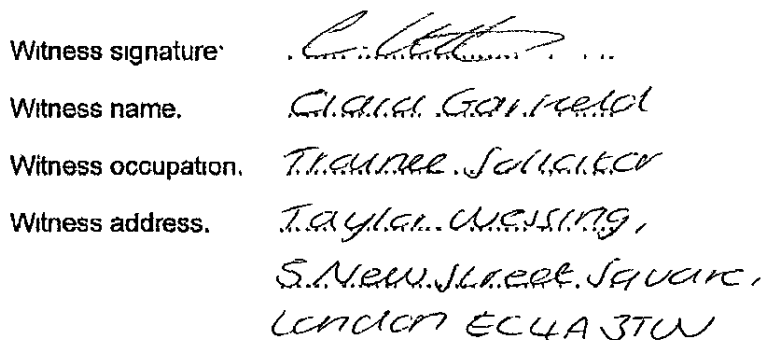 Witness signature:
Witness name. Clara Garfield
Witness occupation. Trainee Solicitor
Witness address. Taylor Wessing,
5 New Street Square,
London EC4A 3TW